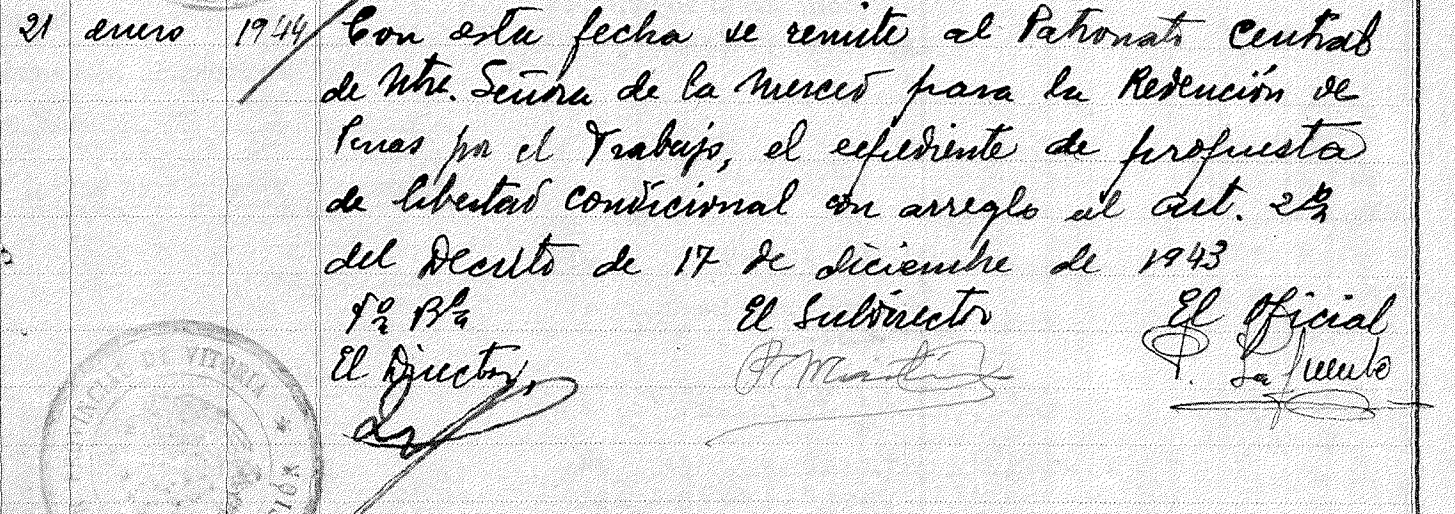 21 enero 1944 Con esta fecha se remite al Patronato Central
de Ntra. Señora de la Merced para la Redención de
Penas por el Trabajo, el expediente de propuesta
de libertad condicional con arreglo al art. 2º
del Decreto de 17 de diciembre de 1943
Vº Bº El Subdirector El Oficial
El Director,
DE VITORIA